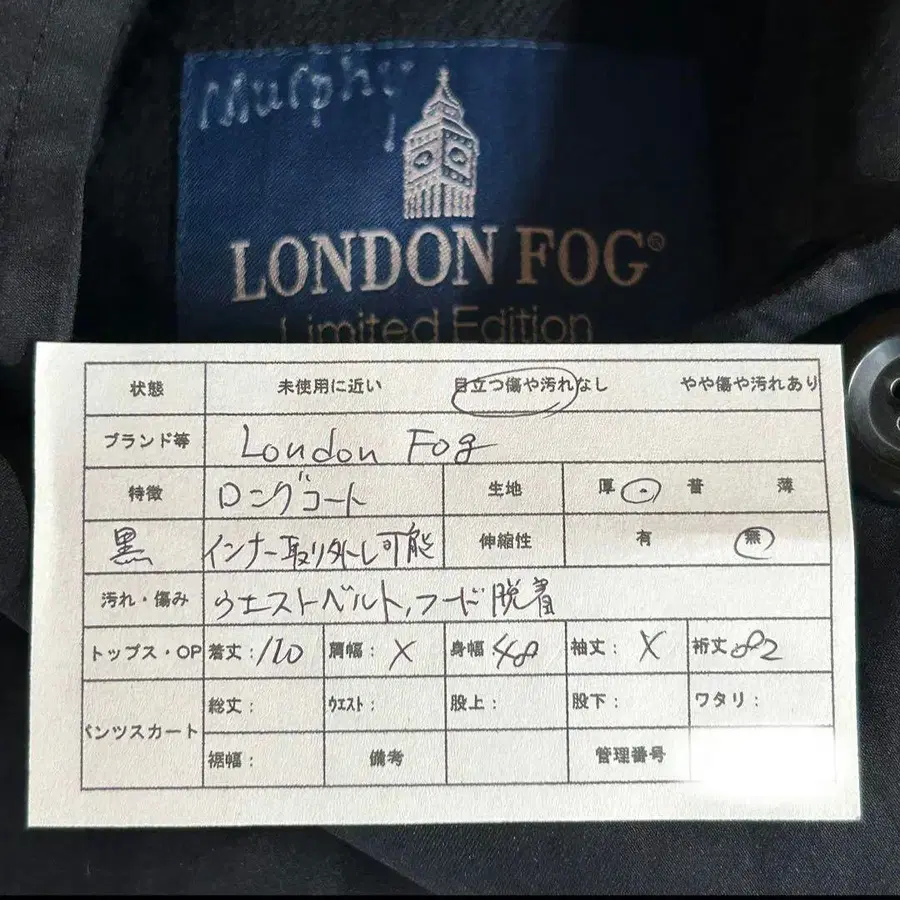 Murphy
LONDON FOG®
Limited Edition
状態 未使用に近い 目立つ傷や汚れなし やや傷や汚れあり
ブランド等 London Fog
特徴 ロングコート 生地 厚 普 薄
黒 インナー取り外し可能 伸縮性 有 無
汚れ・傷み ウエストベルト,フード脱着
トップス・OP 着丈:110 肩幅:X 身幅:48 袖丈:X 裄丈82
パンツスカート 総丈: ウエスト: 股上: 股下: ワタリ:
裾幅: 備考 管理番号